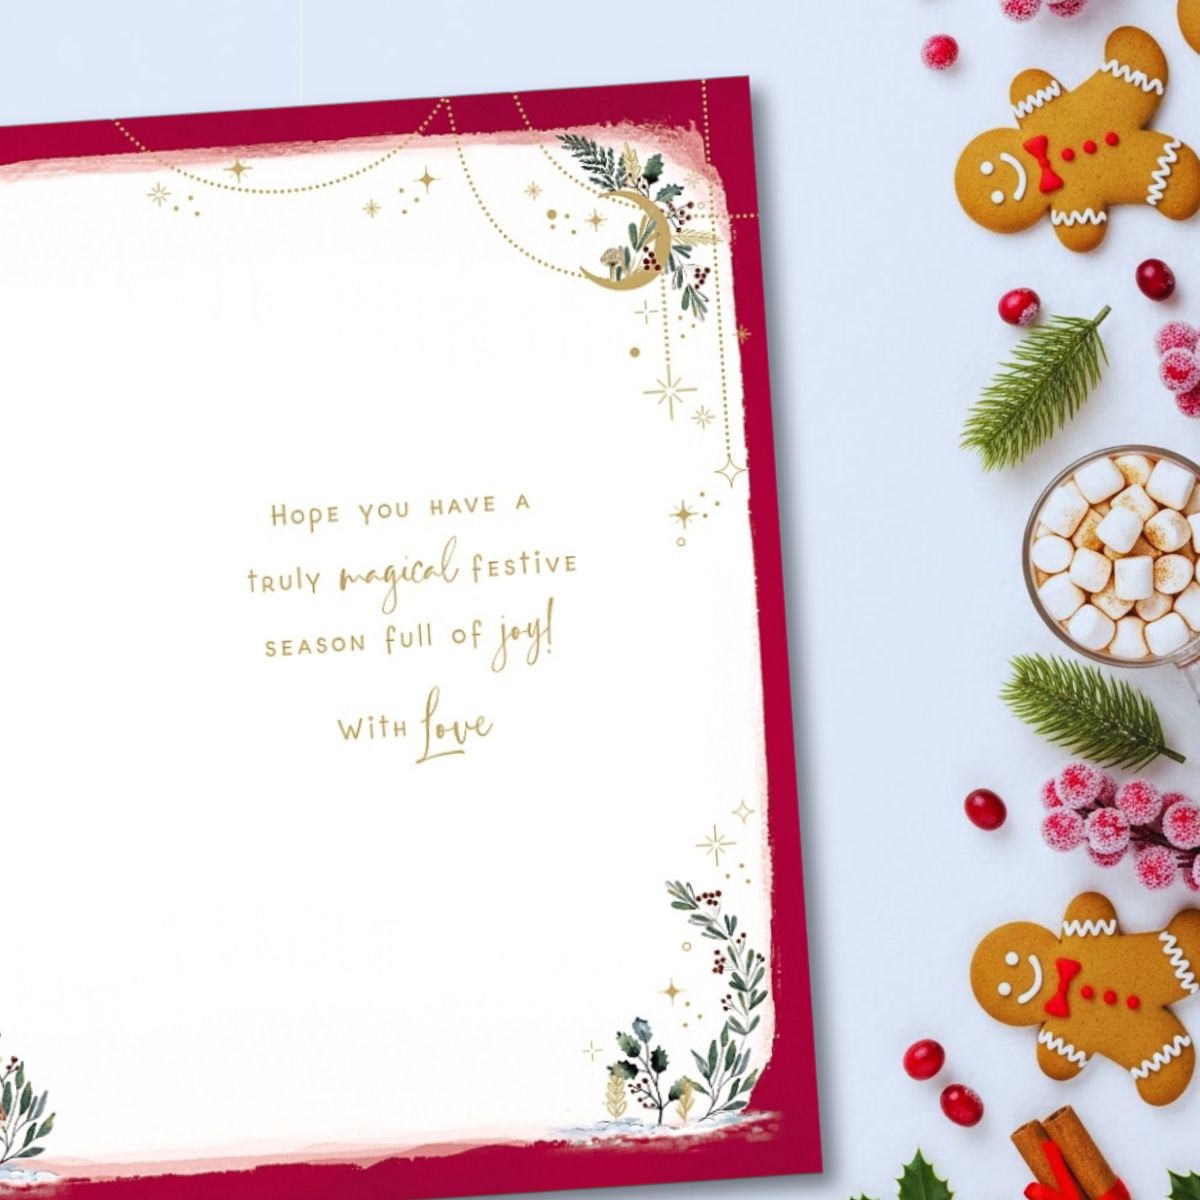 Hope you have a
truly magical festive
season full of joy!
With Love